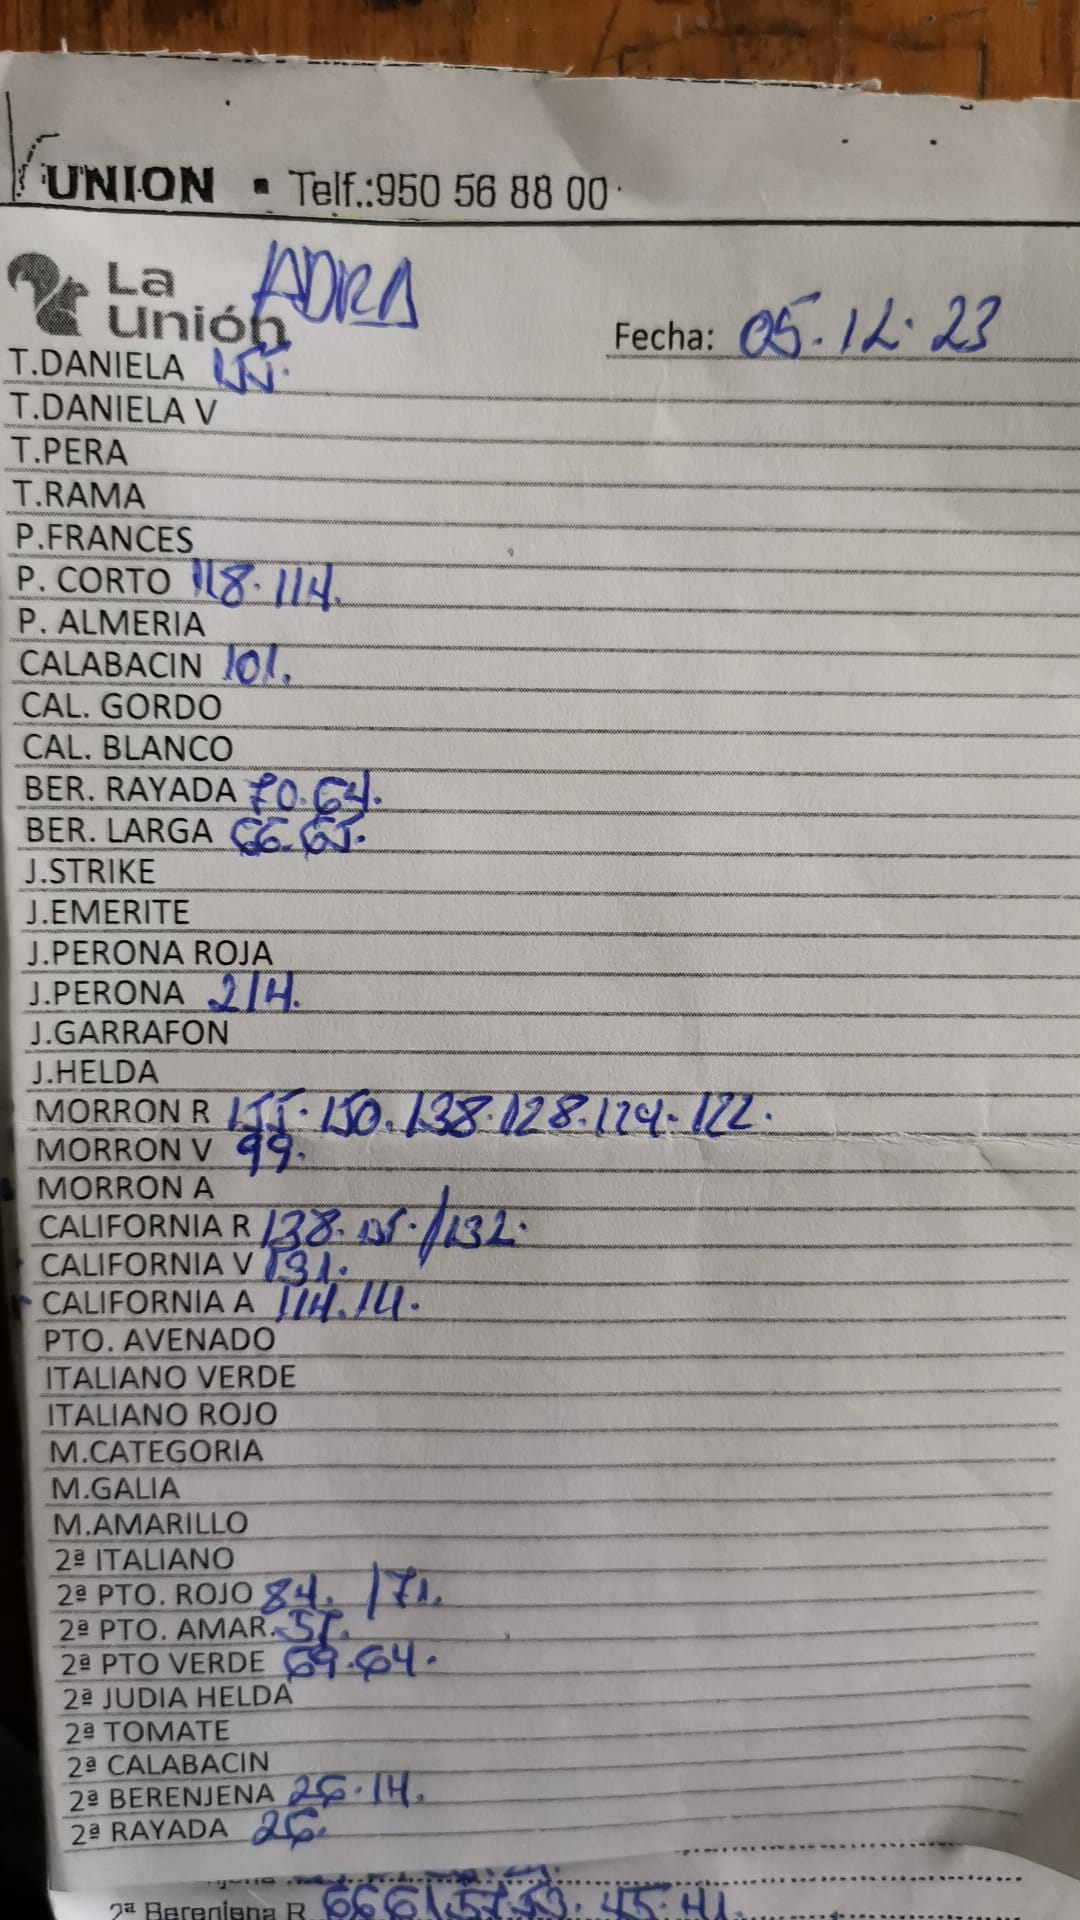 UNION • Telf.:950 56 88 00
La Unión ADRA
Fecha: 05.12.23
T.DANIELA 155.
T.DANIELA V
T.PERA
T.RAMA
P.FRANCES
P. CORTO 118.114.
P. ALMERIA
CALABACIN 101.
CAL. GORDO
CAL. BLANCO
BER. RAYADA 70.64.
BER. LARGA 66.65.
J.STRIKE
J.EMERITE
J.PERONA ROJA
J.PERONA 214.
J.GARRAFON
J.HELDA
MORRON R 155.150.138.128.124.122.
MORRON V 99.
MORRON A
CALIFORNIA R 138. 135./132.
CALIFORNIA V 131.
CALIFORNIA A 114.111.
PTO. AVENADO
ITALIANO VERDE
ITALIANO ROJO
M.CATEGORIA
M.GALIA
M.AMARILLO
2ª ITALIANO
2ª PTO. ROJO 84. /71.
2ª PTO. AMAR. 57.
2ª PTO VERDE 69.64.
2ª JUDIA HELDA
2ª TOMATE
2ª CALABACIN
2ª BERENJENA 26.14.
2ª RAYADA 26.
2ª Berenjena R 45.41.